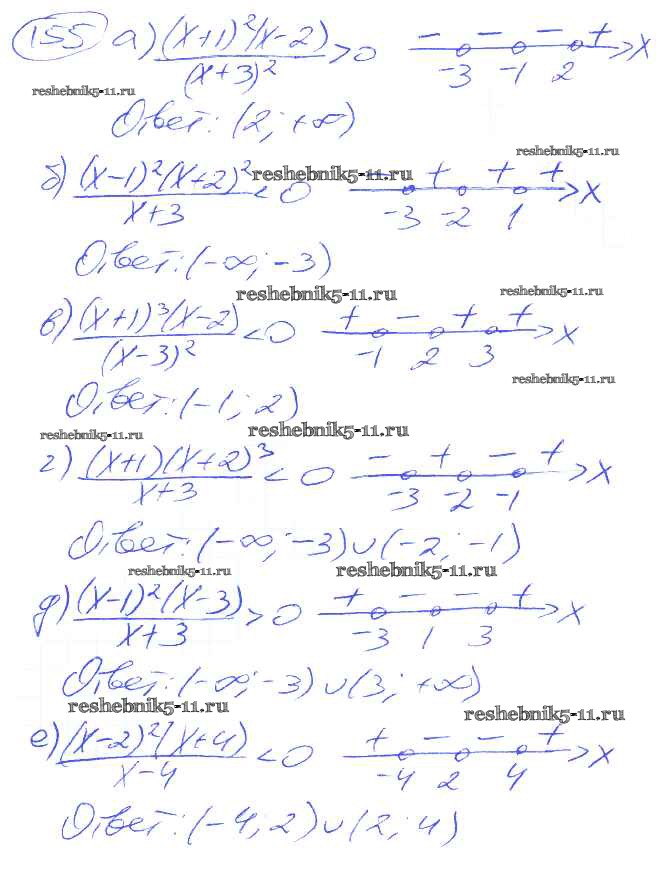 155 а) (x+1)²(x-2)/(x+3)² > 0 - - - + -3 -1 2 x
reshebnik5-11.ru
Ответ: (2; +∞)
reshebnik5-11.ru
б) (x-1)²(x+2)²/(x+3) < 0 - + + + -3 -2 1 x
reshebnik5-11.ru
Ответ: (-∞; -3)
reshebnik5-11.ru
reshebnik5-11.ru
в) (x+1)³(x-2)/(x-3)² < 0 + - + + -1 2 3 x
reshebnik5-11.ru
Ответ: (-1; 2)
reshebnik5-11.ru
reshebnik5-11.ru
г) (x+1)(x+2)³/(x+3) < 0 - + - + -3 -2 -1 x
Ответ: (-∞; -3)∪(-2; -1)
reshebnik5-11.ru
reshebnik5-11.ru
д) (x-1)²(x-3)/(x+3) > 0 + - - + -3 1 3 x
Ответ: (-∞; -3)∪(3; +∞)
reshebnik5-11.ru
reshebnik5-11.ru
е) (x-2)²(x+4)/(x-4) < 0 + - - + -4 2 4 x
Ответ: (-4; 2)∪(2; 4)